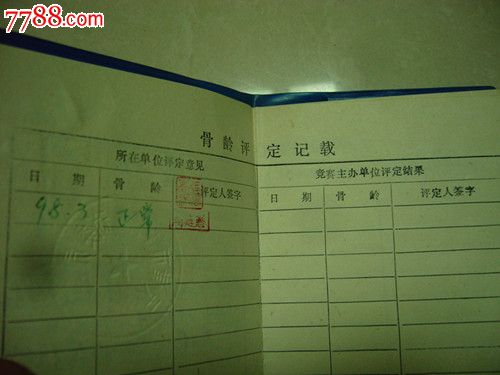 7788.com
骨龄评定记载
所在单位评定意见
日期 骨龄 评定人签字
98.3 正常
竞赛主办单位评定结果
日期 骨龄 评定人签字